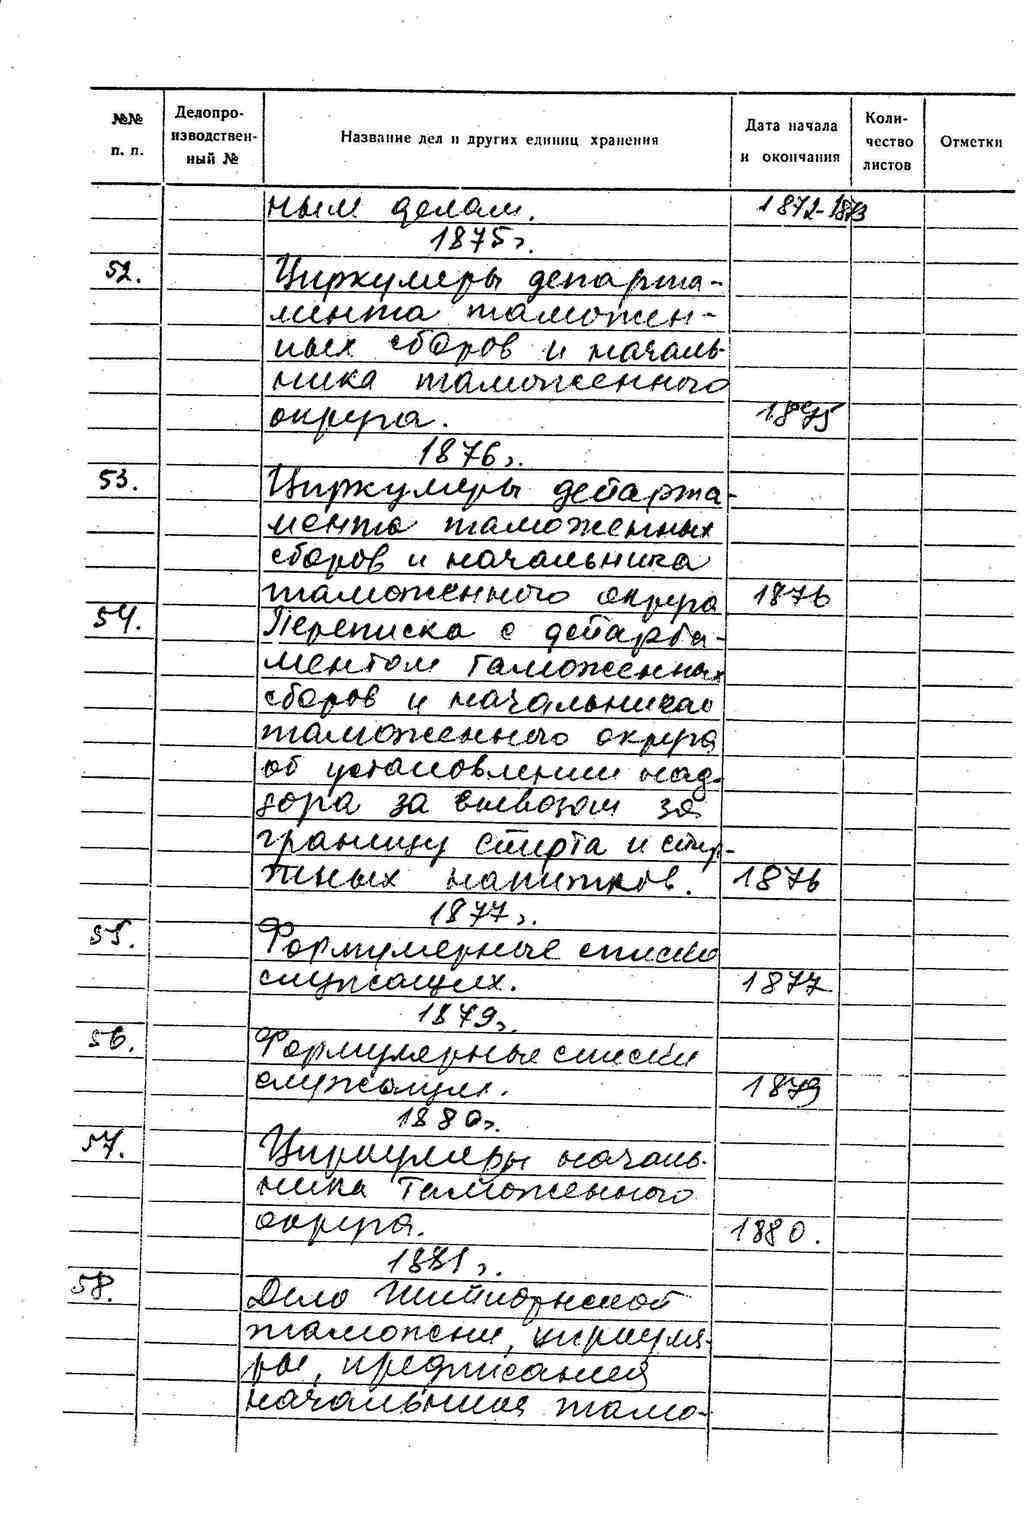 №№ п. п. Делопроизводственный № Название дел и других единиц хранения Дата начала и окончания Количество листов Отметки
ным делам. 1872-1873
1875г.
52. Циркуляры департа-
мента таможен-
ных сборов и началь-
ника таможенного
округа. 1875
1876г.
53. Циркуляры департа-
мента таможенных
сборов и начальника
таможенного округа 1876
54. Переписка с департа-
ментом таможенных
сборов и начальником
таможенного округа
об установлении над-
зора за вывозом за
границу спирта и спир-
тных напитков. 1876
1877г.
55. Формулярные списки
служащих. 1877
1879г.
56. Формулярные списки
служащих. 1879
1880г.
57. Циркуляры началь-
ника таможенного
округа. 1880.
1881г.
58. Дело
таможни, циркуля-
ры, предписания
начальника тамо-